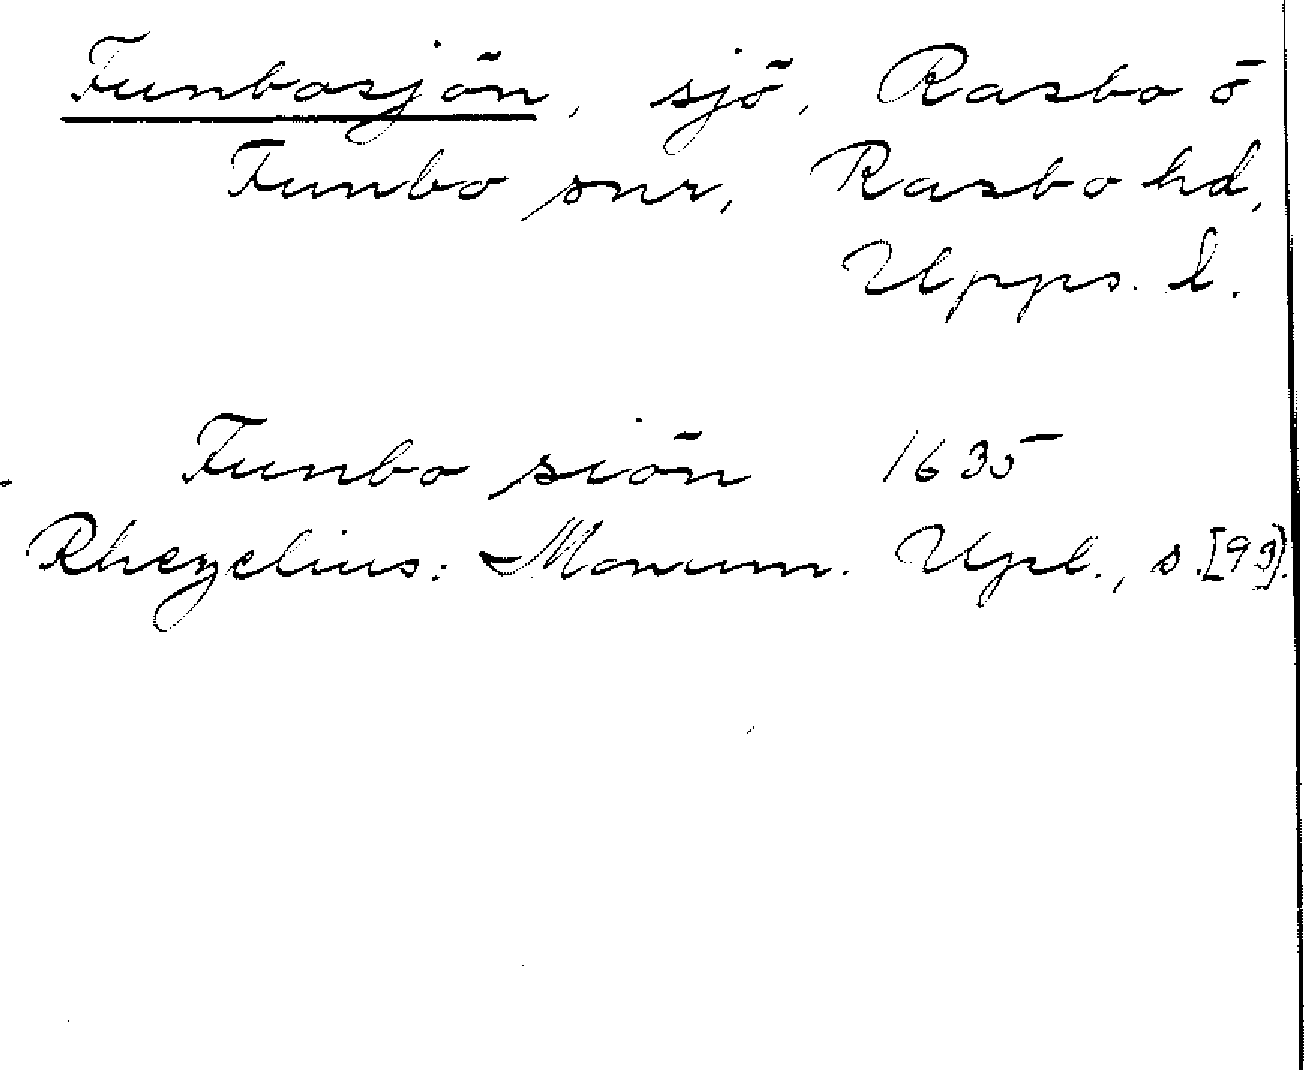 Funbosjön, sjö, Rasbo o
Funbo snr, Rasbo hd,
Upps. l.
Funbo siön 1635
Rhezelius: Monum. Upl., s. [99].